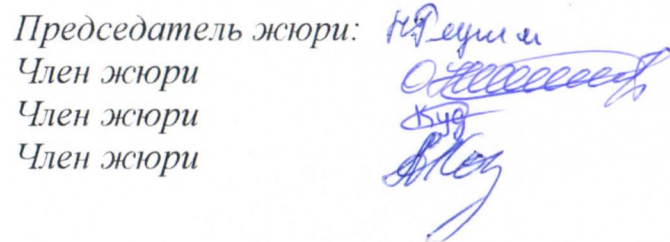 Председатель жюри:
Член жюри
Член жюри
Член жюри